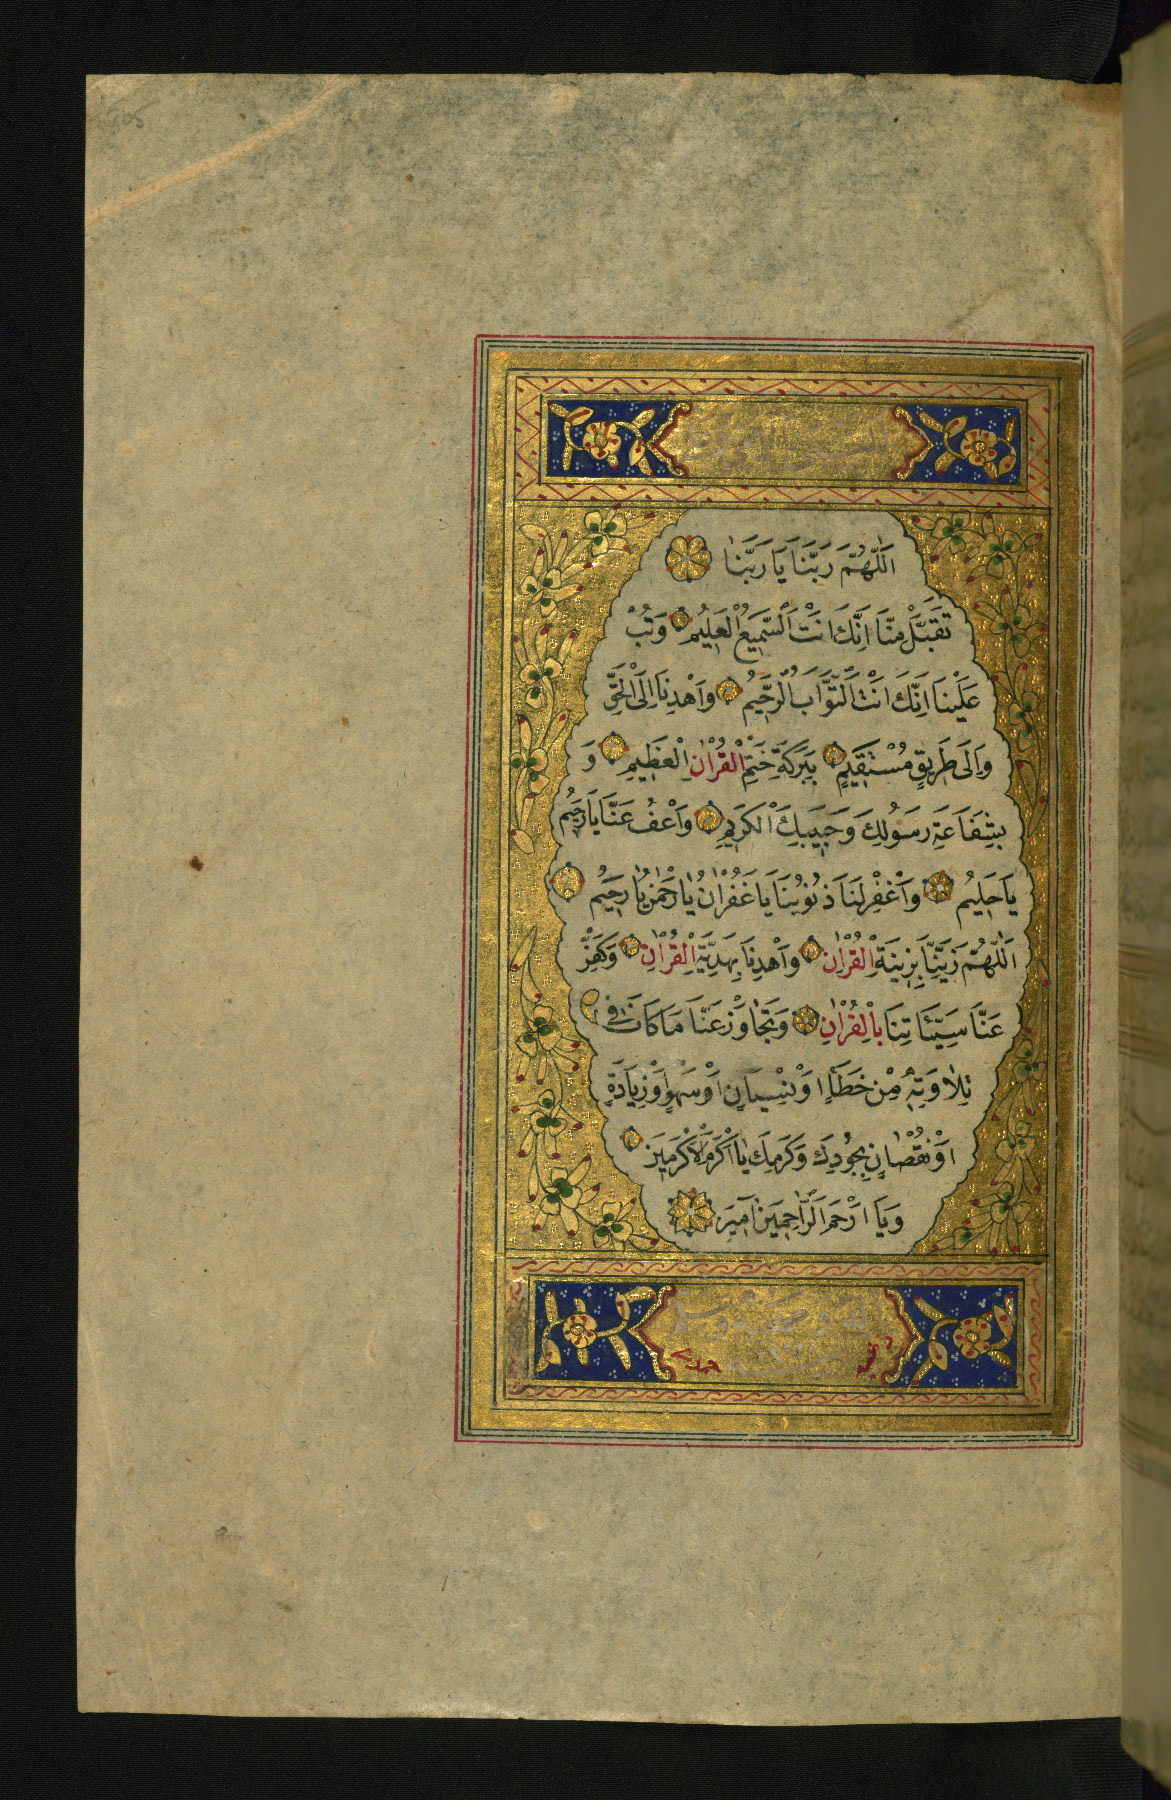 اَللّٰهُمَّ رَبَّنَا يَا رَبَّنَا
تَقَبَّلْ مِنَّا اِنَّكَ اَنْتَ السَّمِيعُ الْعَلِيمُ وَتُبْ
عَلَيْنَا اِنَّكَ اَنْتَ التَّوَّابُ الرَّحِيمُ وَاَهْدِنَا اِلَى الْحَقِّ
وَاِلَى طَرِيقٍ مُسْتَقِيمٍ بِبَرَكَةِ خَتْمِ الْقُرْاٰنِ الْعَظِيمِ وَ
بِشَفَاعَةِ رَسُولِكَ وَحَبِيبِكَ الْكَرِيمِ وَاَعْفُ عَنَّا يَا رَحِيمُ
يَا حَلِيمُ وَاَغْفِرْ لَنَا ذُنُوبَنَا يَا غُفْرَانُ يَا رَحْمٰنُ يَا رَحِيمُ
اَللّٰهُمَّ زَيِّنَّا بِزِينَةِ الْقُرْاٰنِ وَاَهْدِنَا بِهَدِيَّةِ الْقُرْاٰنِ وَكَفِّرْ
عَنَّا سَيِّئَاتِنَا بِالْقُرْاٰنِ وَتَجَاوَزْ عَنَّا مَا كَانَ فِي
تِلَاوَتِهِ مِنْ خَطَاٍ اَوْ نِسْيَانٍ اَوْ سَهْوٍ اَوْ زِيَادَةٍ
اَوْ نُقْصَانٍ بِجُودِكَ وَكَرَمِكَ يَا اَكْرَمَ الْاَكْرَمِينَ
وَيَا اَرْحَمَ الرَّاحِمِينَ اٰمِينَ